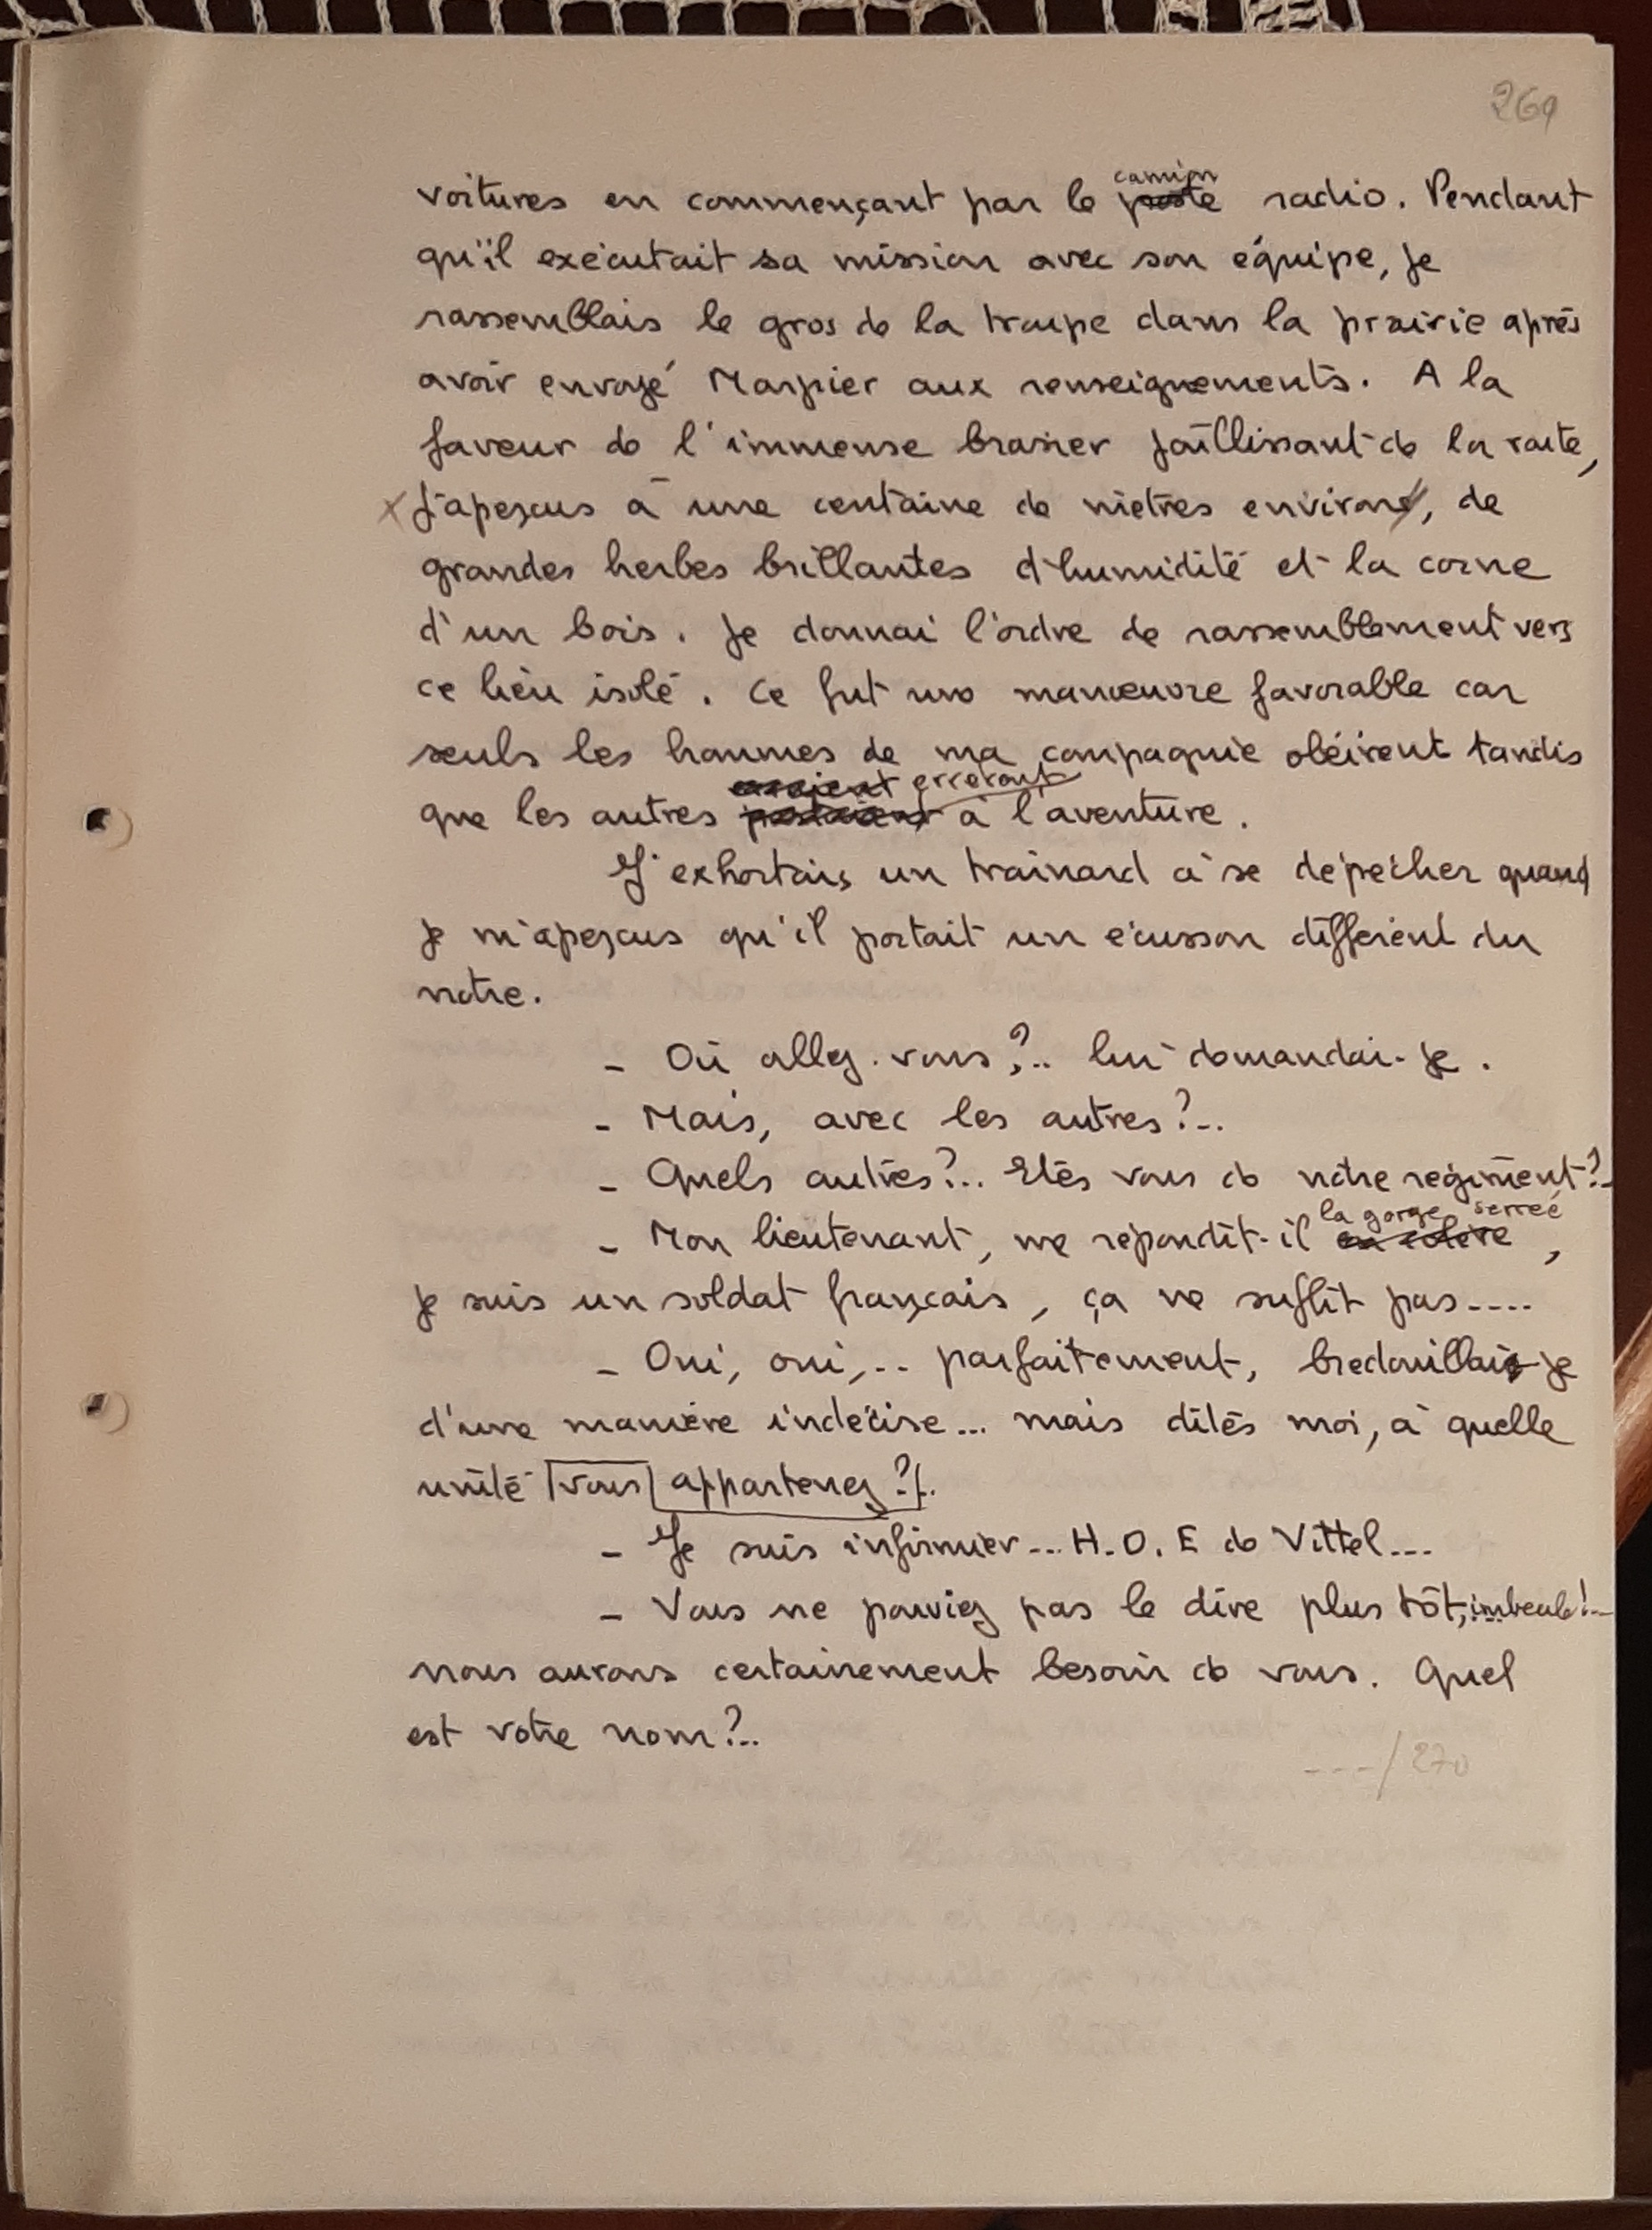 269
voitures en commençant par le camion poste radio. Pendant
qu'il exécutait sa mission avec son équipe, je
rassemblais le gros de la troupe dans la prairie après
avoir envoyé Marpier aux renseignements. A la
faveur de l'immense brasier jaillissant de la route,
x j'aperçus à une centaine de mètres environs, de
grandes herbes brillantes d'humidité et la corne
d'un bois. Je donnai l'ordre de rassemblement vers
ce lieu isolé. Ce fut une manœuvre favorable car
seuls les hommes de ma compagnie obéirent tandis
que les autres erreront à l'aventure.
J'exhortais un trainard à se dépécher quand
je m'aperçus qu'il portait un écusson différent du
notre.
- Où allez-vous ?.. lui demandai-je.
- Mais, avec les autres ?..
- Quels autres ?.. Etes vous de notre régiment ?..
- Mon lieutenant, me répondit-il la gorge serrée en colère,
je suis un soldat français, ça ne suffit pas....
- Oui, oui,.. parfaitement, bredouillais-je
d'une manière indécise... mais dites moi, à quelle
unité vous appartenez ?..
- Je suis infirmier... H.O.E de Vittel...
- Vous ne pouviez pas le dire plus tôt, imbecile !..
nous aurons certainement besoin de vous. Quel
est votre nom ?..
---/270